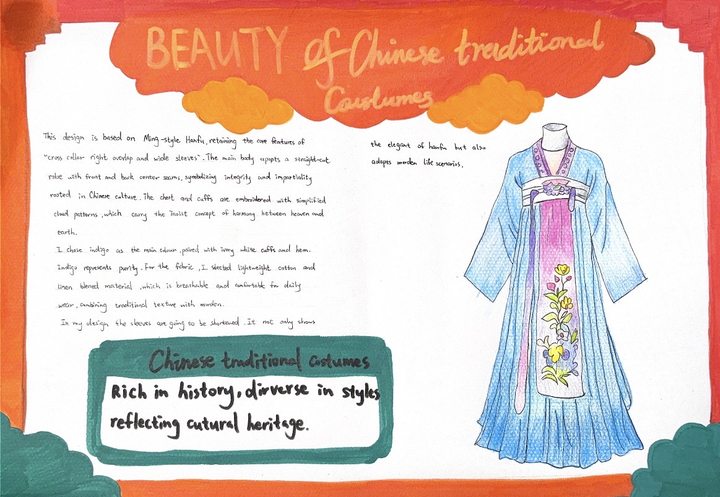 BEAUTY of Chinese traditional
Costumes
This design is based on Ming-style Hanfu, retaining the core features of
"cross collar right overlap and wide sleeves". The main body adopts a straight-cut
robe with front and back center seams, symbolizing integrity and impartiality
rooted in Chinese culture. The chest and cuffs are embroidered with simplified
cloud patterns, which carry the Taoist concept of harmony between heaven and
earth.
I chose indigo as the main colour, paired with ivory white cuffs and hem.
Indigo represents purity. For the fabric, I selected lightweight cotton and
linen blened material, which is breathable and comfortable for daily
wear, combining traditional texture with morden.
In my design, the sleeves are going to be shortened. It not only shows
the elegant of hanfu but also
adapts morden life scenarios.
Chinese traditional costumes
Rich in history, dirverse in styles
reflecting cutural heritage.